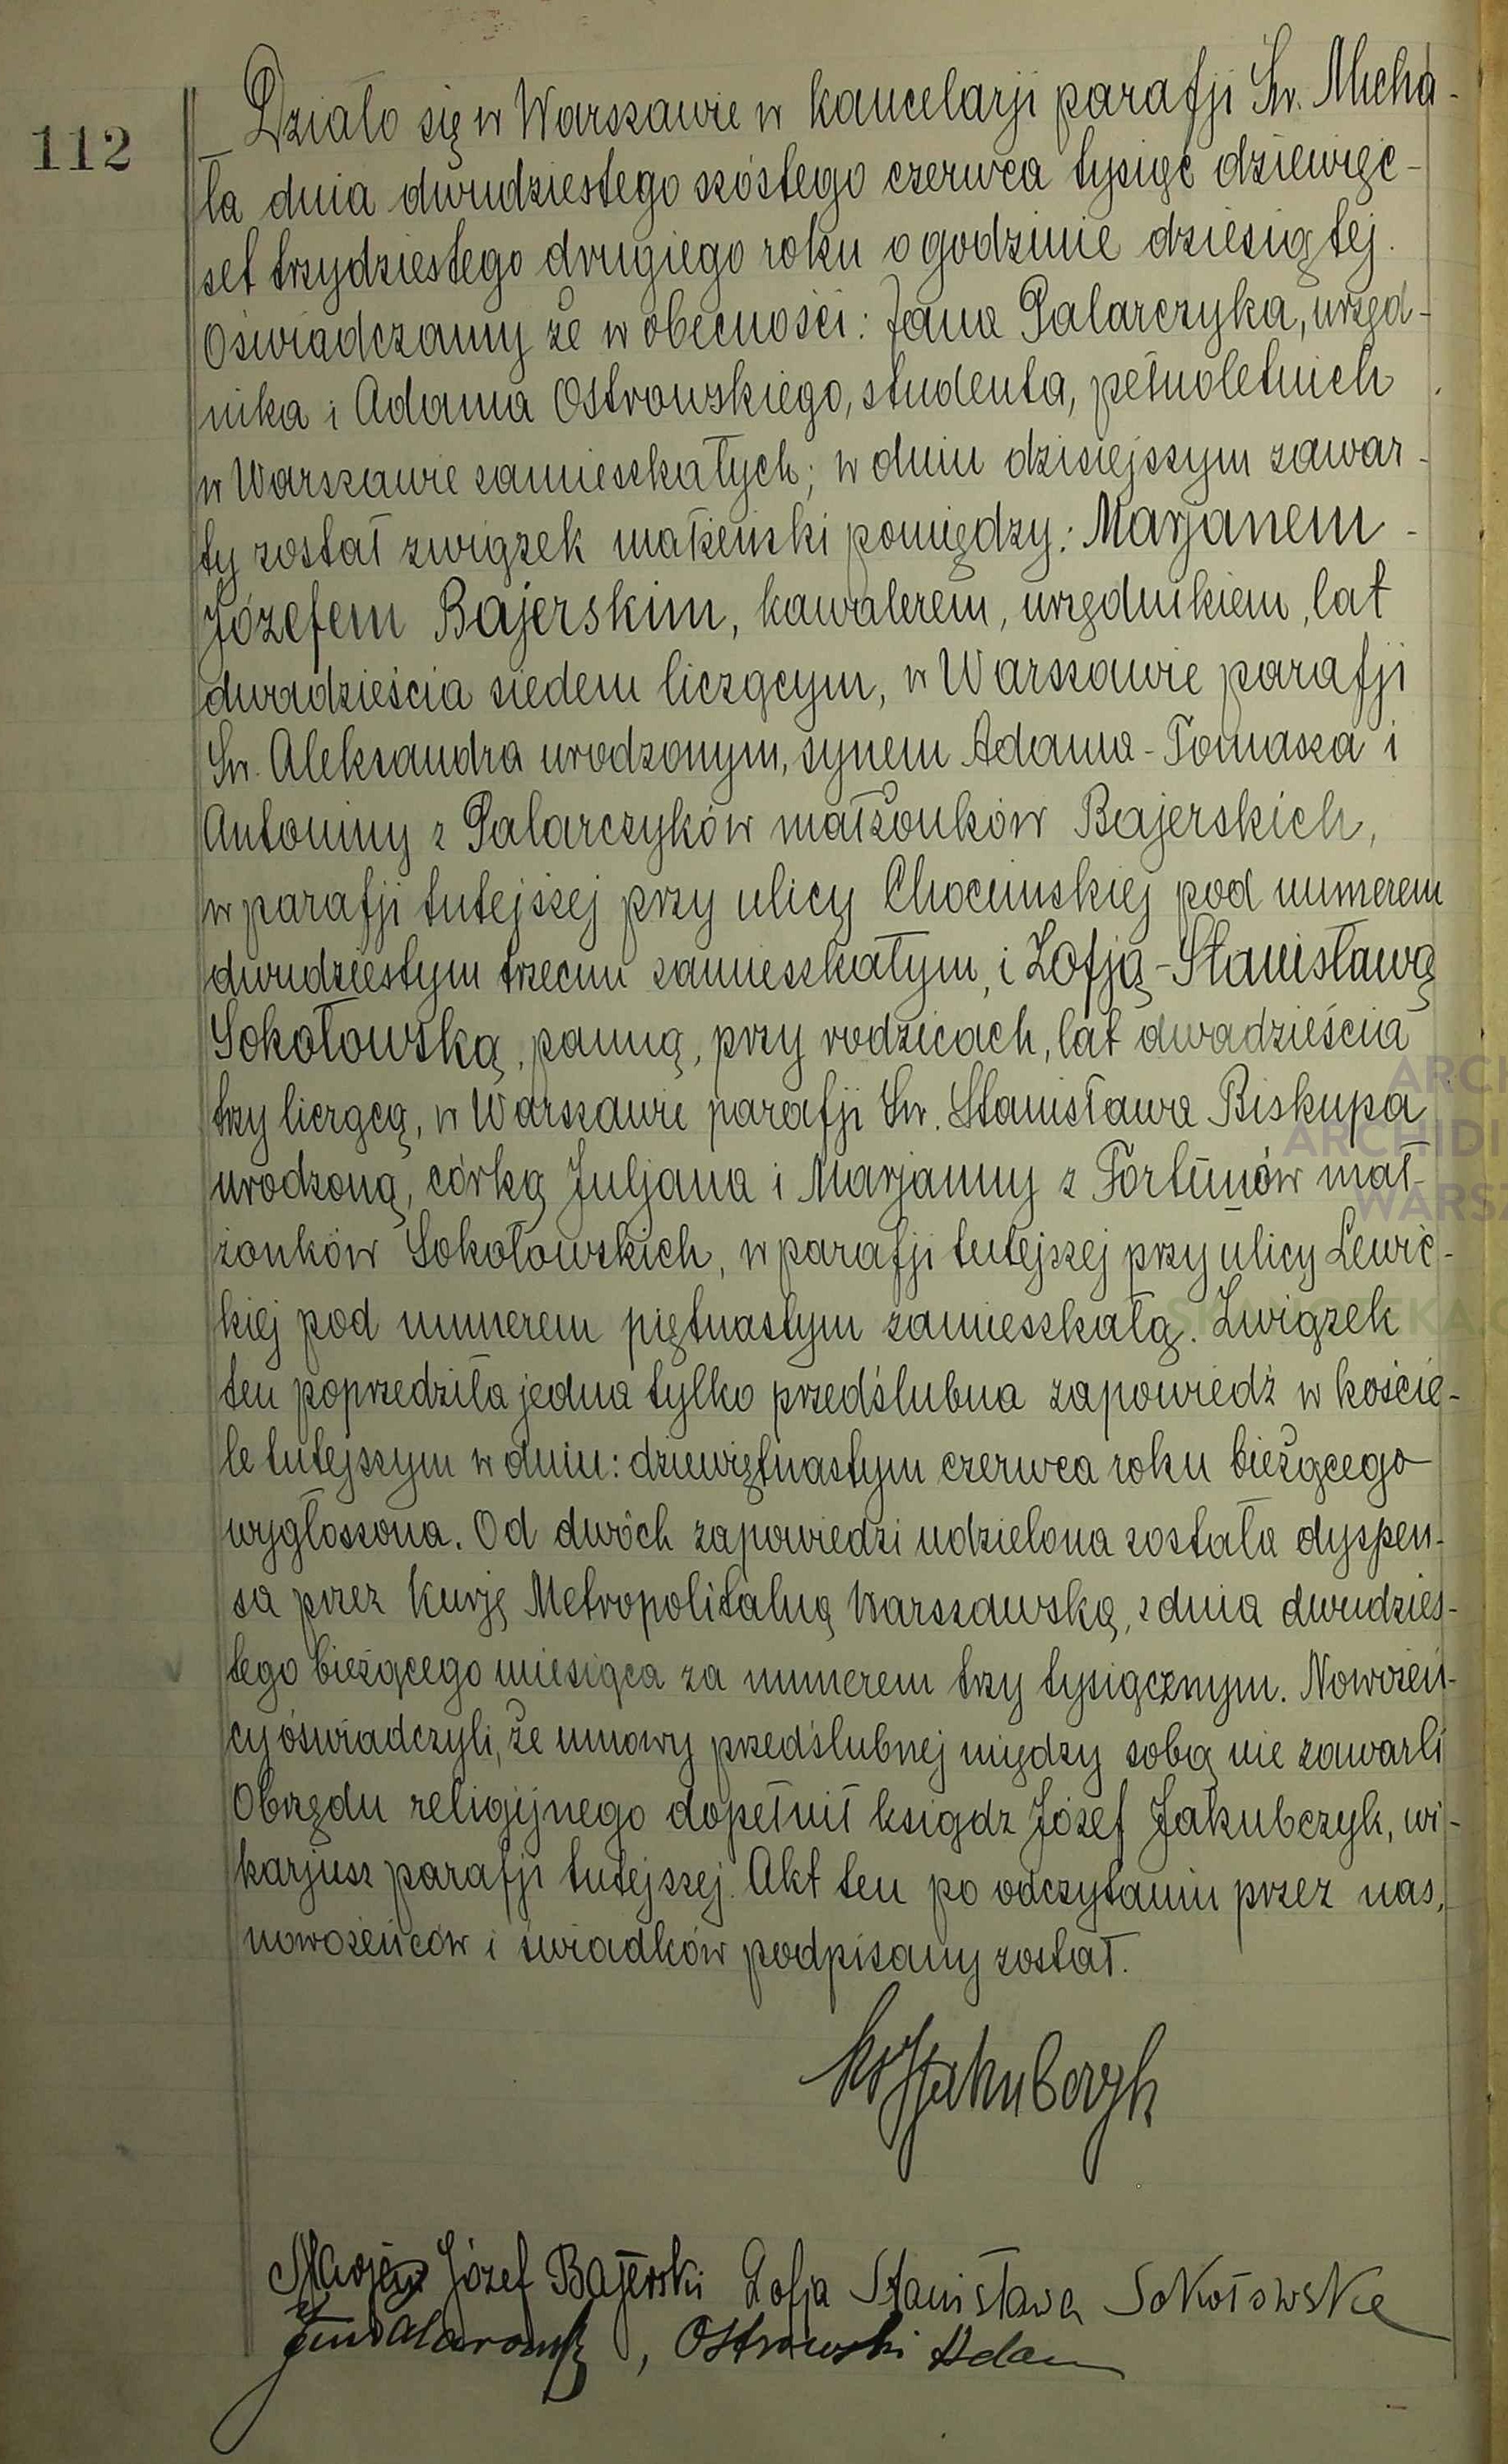 112
Działo się w Warszawie w kancelarji parafji Św. Micha-
ła dnia dwudziestego szóstego czerwca tysiąc dziewięć-
set trzydziestego drugiego roku o godzinie dziesiątej.
Oświadczamy że w obecności: Jana Palarczyka, urzęd-
nika i Adama Ostrowskiego, studenta, pełnoletnich
w Warszawie zamieszkałych; w dniu dzisiejszym zawar-
ty został związek małżeński pomiędzy: Marjanem -
Józefem Bajerskim, kawalerem, urzędnikiem, lat
dwadzieścia siedem liczącym, w Warszawie parafji
Św. Aleksandra urodzonym, synem Adama-Tomasza i
Antoniny z Palarczyków małżonków Bajerskich,
w parafji tutejszej przy ulicy Chocimskiej pod numerem
dwudziestym trzecim zamieszkałym, i Zofją-Stanisławą
Sokołowską, panną, przy rodzicach, lat dwadzieścia
trzy liczącą, w Warszawie parafji Św. Stanisława Biskupa
urodzoną, córką Juljana i Marjanny z Fortunów mał-
żonków Sokołowskich, w parafji tutejszej przy ulicy Lewic-
kiej pod numerem piętnastym zamieszkałą. Związek
ten poprzedziła jedna tylko przedślubna zapowiedź w koście-
le tutejszym w dniu: dziewiętnastym czerwca roku bieżącego
wygłoszona. Od dwóch zapowiedzi udzielona została dyspen-
sa przez Kurję Metropolitalną Warszawską, z dnia dwudzies-
tego bieżącego miesiąca za numerem trzy tysiącznym. Nowożeń-
cy oświadczyli, że umowy przedślubnej między sobą nie zawarli
Obrzędu religijnego dopełnił ksiądz Józef Jakubczyk, wi-
karjusz parafji tutejszej. Akt ten po odczytaniu przez nas,
nowożeńców i świadków podpisany został.
Ks J Jakubczyk
Marjan Józef Bajerski Zofja Stanisława Sokołowska
Jan Palarczyk, Ostrowski Adam